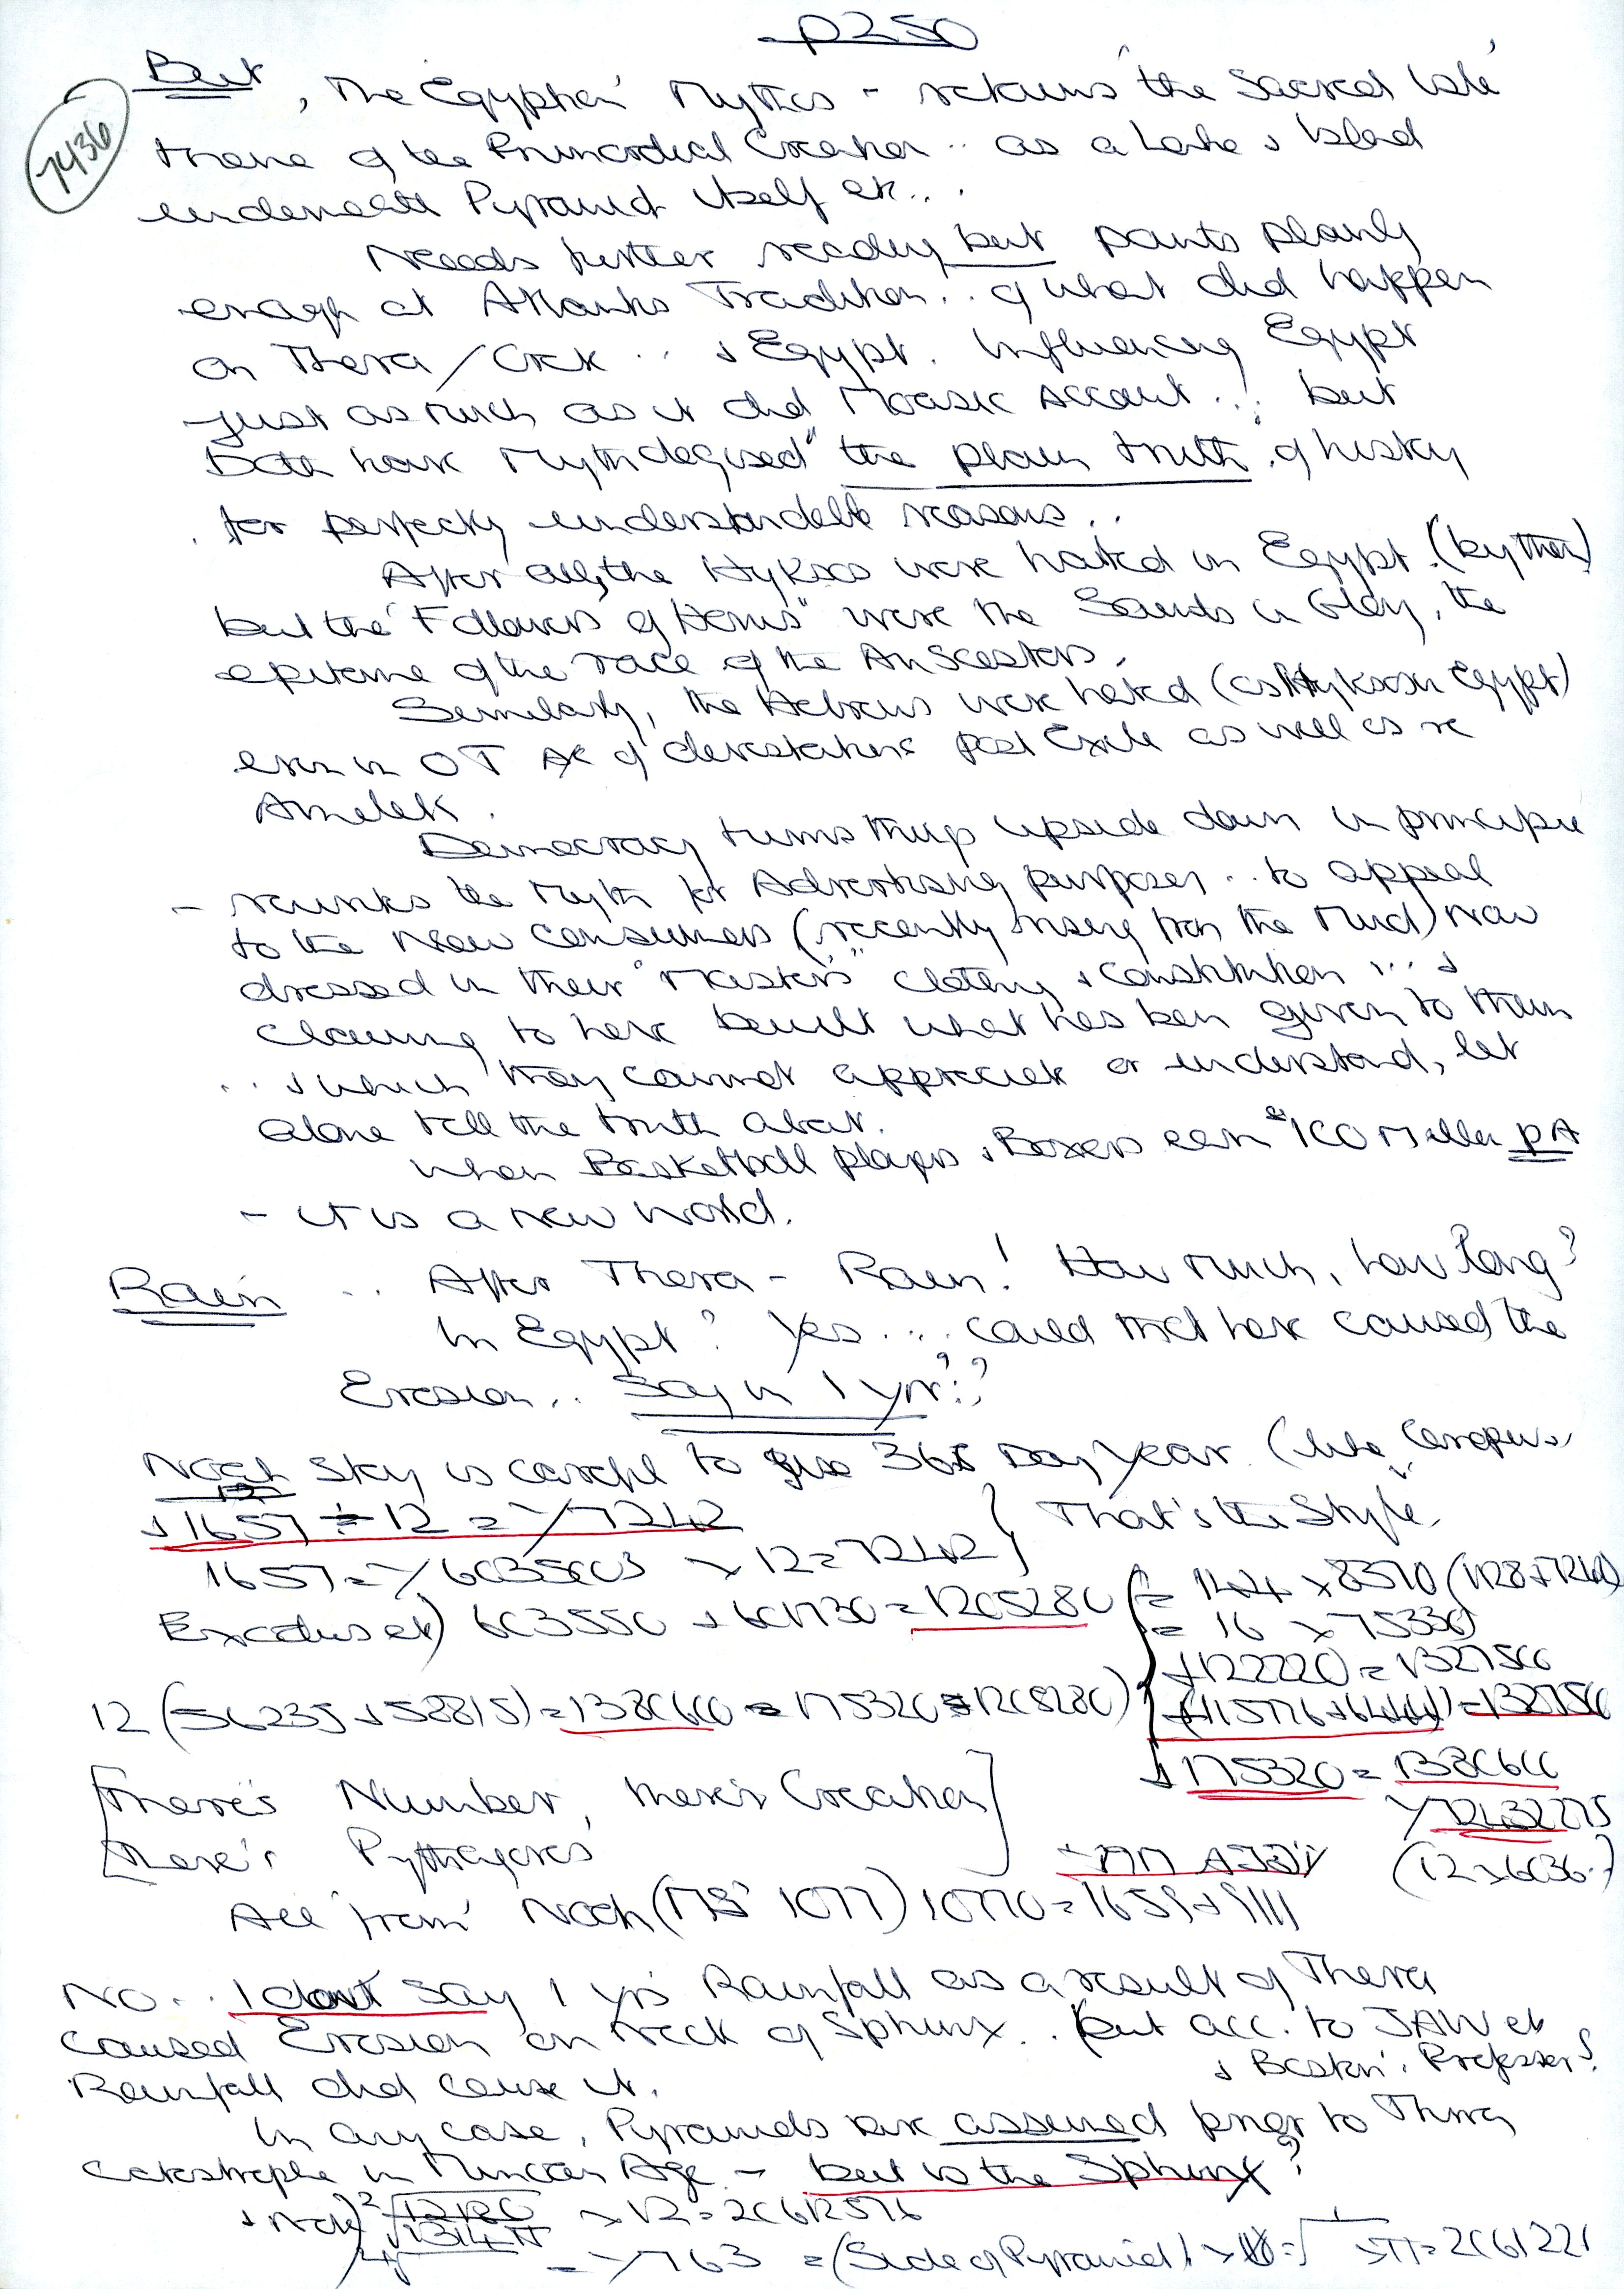 p250
7436
But, the Egyptian Mythos - retains 'the Sacred Lake'
theme of the Primordial Creation .. as a Lake & Island
underneath Pyramid itself etc...
Needs further reading but points plainly
enough at Atlantis Tradition.. of what did happen
on Thera/Crete .. & Egypt. Influencing Egypt
just as much as it did Mosaic Account... but
Both have Myth "the plain truth of history
for perfectly understandable reasons..
After all, the Hyksos were hated in Egypt (by then)
but the "Followers of Horus" were the Saints in Glory, the
epitome of the race of the Anscestors.
Similarly, the Hebrews were hated (as Hyksos in Egypt)
even in OT A/c of devastations post Exile as well as re
Amelek.
Democracy turns things upside down in principle
- the Myth for Advertising purposes .. to appeal
to the New Consumers (recently rising from the Mud) Now
dressed in their "Master's" clothing & constitution ... &
claiming to have built what has been given to them
.. & which they cannot appreciate or understand, let
alone tell the truth about.
When Basketball players & Boxers earn 100 Million pA
- it is a new world.
Rain .. After Thera - Rain! How Much, how long?
In Egypt? Yes .... could that have caused the
Erosion.. Say in 1 yr??
Noah Sky is careful to give 365 Day Year. (like
& 1657 ÷ 12 = 7242 } That's the Style
1657 = 6035003 × 12 = 7242
Exodus etc) 603550 + 601730 = 1205280 = 144 × 8370 (1128 + 7242)
= 16 × 75330)
+ 122220 = 1327500
12 (56235 + 58815) = 1380600 = 175320 + 1205280)
+ 175320 = 1380600
[There's Number, there's Creation]
[there's Pythagoras
(12 × 6036..)
All 'from' Noah (MS' 1077) 10770 = 1659 + 9111
No... I dont say 1 yrs Rainfall as a result of Thera
caused Erosion on neck of Sphinx.. but acc. to JAW etc
& Boston' Professor?
Rainfall did cause it.
In any case, Pyramids are assumed prior to Thera
Catastrophe in Minoan Age - but is the Sphinx?
× 12 = 20612576
763 = (Side of Pyramid)